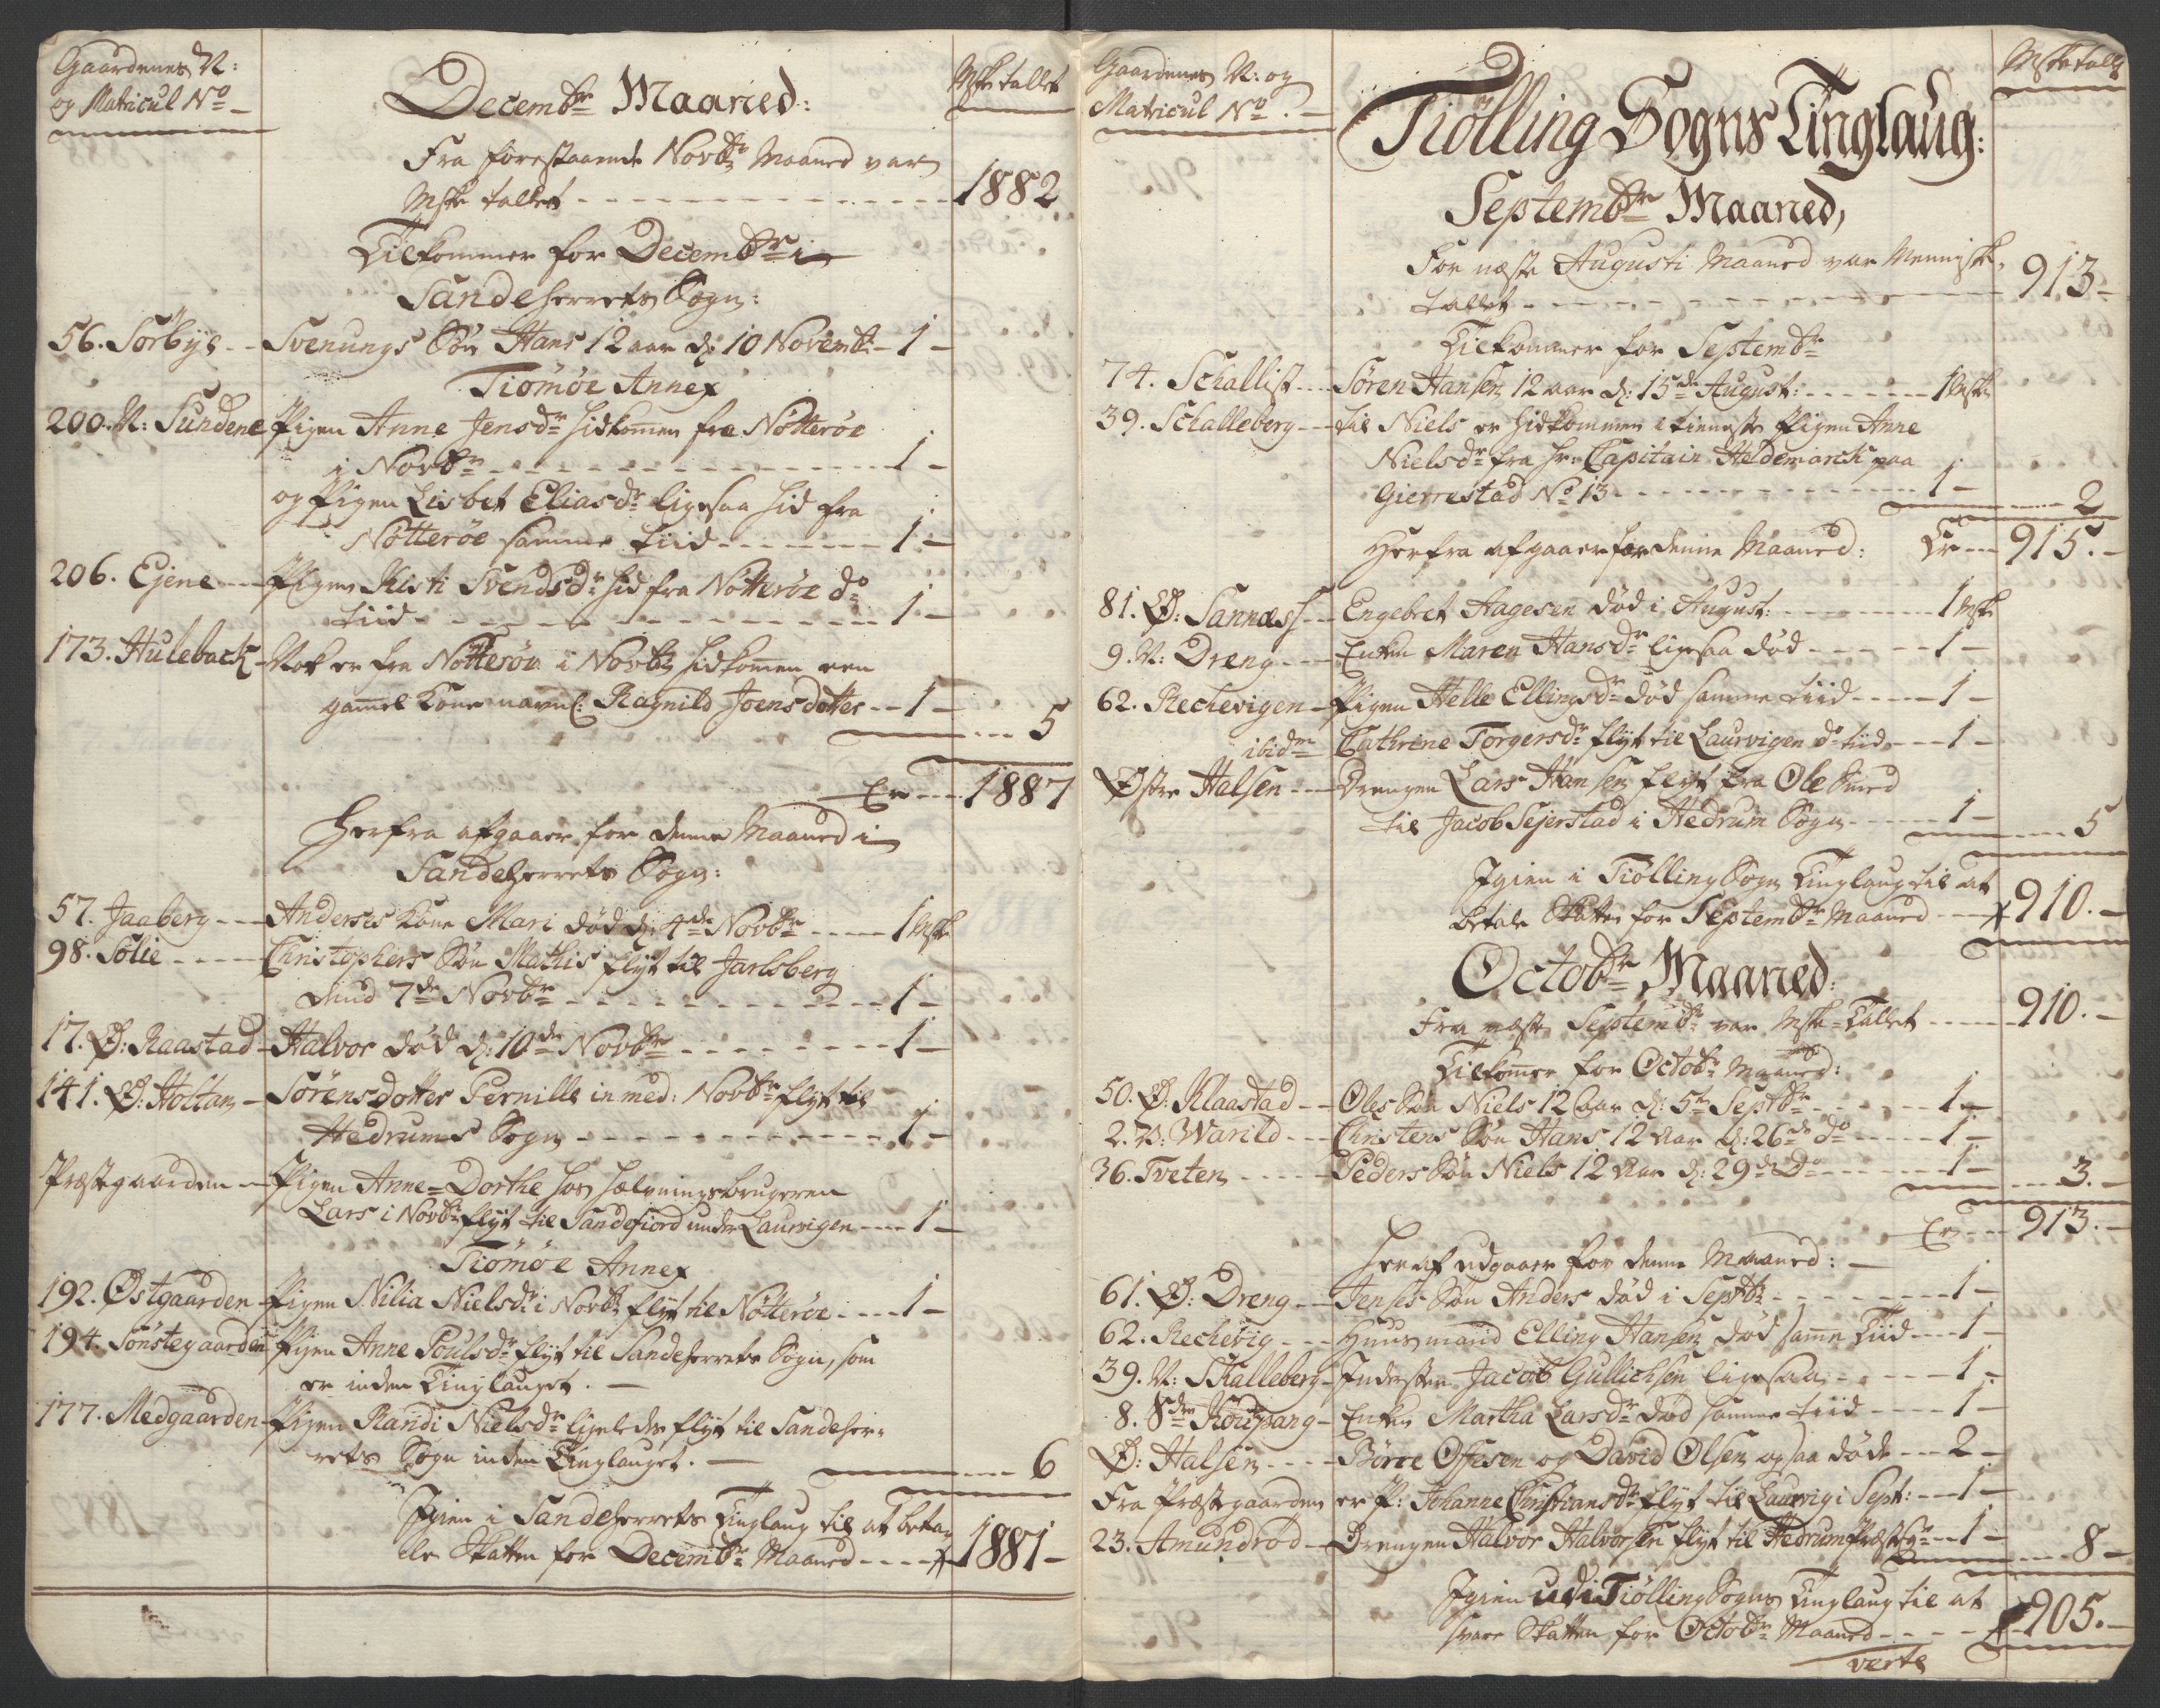 Gaardenes N:
og Matricul No
Decembr Maaned:
Mske tallet
Fra forestaaende Novbr Maaned var
Mske tallet - - - 1882
Tilkommer for Decembr i
Sandeherrets Sogn:
56. Sørbye - - Svenungs Søn Hans 12 aar d: 10 Novembr - 1 -
Tiømøe Annex
200. N: Sundene Pigen Anne Jensdr hidkommen fra Nøtterøe
i Novbr - - - 1 -
og Pigen Lisbet Eliasdr ligesaa hid fra
Nøtterøe samme tiid - - - 1 -
206. Ejene - - Pigen Kisti Svendsdr hid fra Nøtterøe do
tiid - - - 1 -
173. Huleback - Nok er fra Nøtterøe i Novbr hidkommen een
gammel Kone navnl: Ragnild Joensdotter - - 1 - - - - 5
Er - - - 1887
Herfra afgaaer for denne Maaned i
Sandeherrets Sogn:
57. Jaaberg - - - Anderses Kone Mari død d: 4de Novbr - - - 1 Mske
98. Solie - - - Christophers Søn Mathis flyt til Jarlsberg
7de Novbr - - - 1 -
17. Ø: Raastad - Halvor død d: 10de Novbr - - - 1 -
141. Ø: Holtan - Sørensdotter Pernille in med: Novbr flyt til
Hedrums Sogn - - - 1 -
Præstegaarden - - Pigen Anne=Dorthe hos Hælvningsbrugeren
Lars i Novbr flyt til Sandefiord under Laurvigen - - - 1 -
Tiømøe Annex
192. Østgaarden - Pigen Nilia Nielsdr i Novbr flyt til Nøtterøe - - - 1 -
194. Sønstegaarden Pigen Anne Poulsdr flyt til Sandeherrets Sogn, som
er inden Tinglauget. -
177. Medgaarden - Pigen Randi Nielsdr ligeledes flyt til Sandeher-
rets Sogn inden Tinglauget. - - - - 6
Igien i Sandeherrets Tinglaug til at beta-
le Skatten for Decembr Maaned - - - 1881 -
Gaardenes N: og
Matricul No. -
Tiølling Sogns Tinglaug:
Mske tallet
Septembr Maaned,
For næste Augusti Maaned var Menniske-
tallet - - - 913 -
Tilkommer for Septembr
74. Schallist - - - Søren Hansen 12 aar d: 15de August: - - - 1 Mske
39. Schalleberg - - - til Niels er hidkommen i tieneste Pigen Anne
Nielsdr fra Hr: Capitain Heldemarck paa
Gierrestad No 13 - - - 1 - - - - 2
Herfra afgaaer for denne Maaned: Er - - - 915. -
81. Ø: Sannæss - - Engebret Aagesen død i August: - - - 1 Mske
9. N: Dreng - - - Enken Maren Hansdr ligesaa død - - - 1 -
62. Rechevigen - Pigen Helle Ellingsdr død samme tiid - - - 1 -
ibidm Cathrine Torgersdr flyt til Laurvigen do tiid - - - 1 -
Østre Halsen - - - Drengen Lars Hansen flyt fra Ole Smed
til Jacob Sejerstad i Hedrum Sogn - - - 1 - - - - 5
Igien i Tiølling Sogns Tinglaug til at
betale Skatten for Septembr Maaned - - - 910. -
Octobr Maaned:
Fra næste Septembr var Mske=Tallet - - - 910. -
Tilkommer for Octobr Maaned:
50. Ø: Klaastad - - Oles Søn Niels 12 Aar d: 5te Septbr - - - 1 -
2. V: Warild - - - Christens Søn Hans 12 Aar d: 26de do - - - 1 -
36. Tveten - - - Peders Søn Niels 12 Aar d: 29de Do - - - 1 - - - - 3. -
Er - - - 913. -
Heraf udgaaer for denne Maaned: -
61. Ø: Dreng - - Jenses Søn Anders død i Septbr - - - 1 -
62. Rechevig - - - Huusmand Elling Hansen død samme Tiid - - - 1 -
39. N: Skalleberg - Indersten Jacob Gullichsen ligesaa - - - 1 -
8. Sdre Koupang - Enken Martha Larsdr død samme tiid - - - 1 -
Ø: Halsen - - - Børre Offesen og David Olsen ogsaa døde - - - 2 -
Fra Præstegaarden er P: Johanne Christiansdr flyt til Laurvig i Sept: - - - 1 -
23. Amundrød - Drengen Halvor Halvorsen flyt til Hedrum Præstegr - - 1 - - - - 8 -
Igien udi Tiølling Sogns Tinglaug til at
svare Skatten for Octobr Maaned - - - 905. -
verte